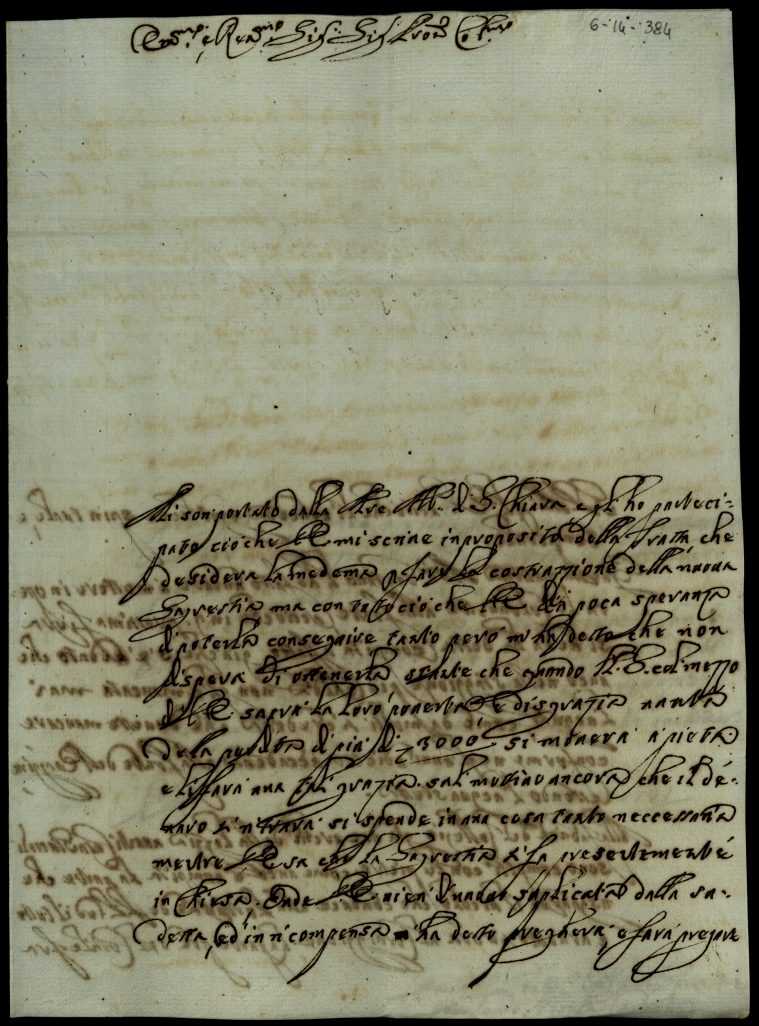 6-14-384
Em.mo e Rev.mo Sig.r Sig.r Pron Col.mo
Mi son portato dalla Mre Abb. di S. Chiara e gl'ho parteci=
pato ciò che VE mi scrive in proposito della Tratta che
desidera la medema p fare la costruzzione della nuova
Sagrestia ma con tutto ciò che VE dia poca speranza
di poterla conseguire tanto però m'ha detto che non
dispera di ottenerla stante che quando N. S. col mezzo
di VE saprà la loro povertà e disgrazia havuta
dela perdita di più di 3000 si moverà a pietà
e li farà una tal grazia sul motivo ancora che il de=
naro si spende in una cosa tanto neccessaria
mentre VE sa che la Sagrestia si fa presentemente
in Chiesa. Onde VE vien di nuovo suplicata dalla su=
detta, ed in ricompensa m'ha detto pregherà, e farà pregare